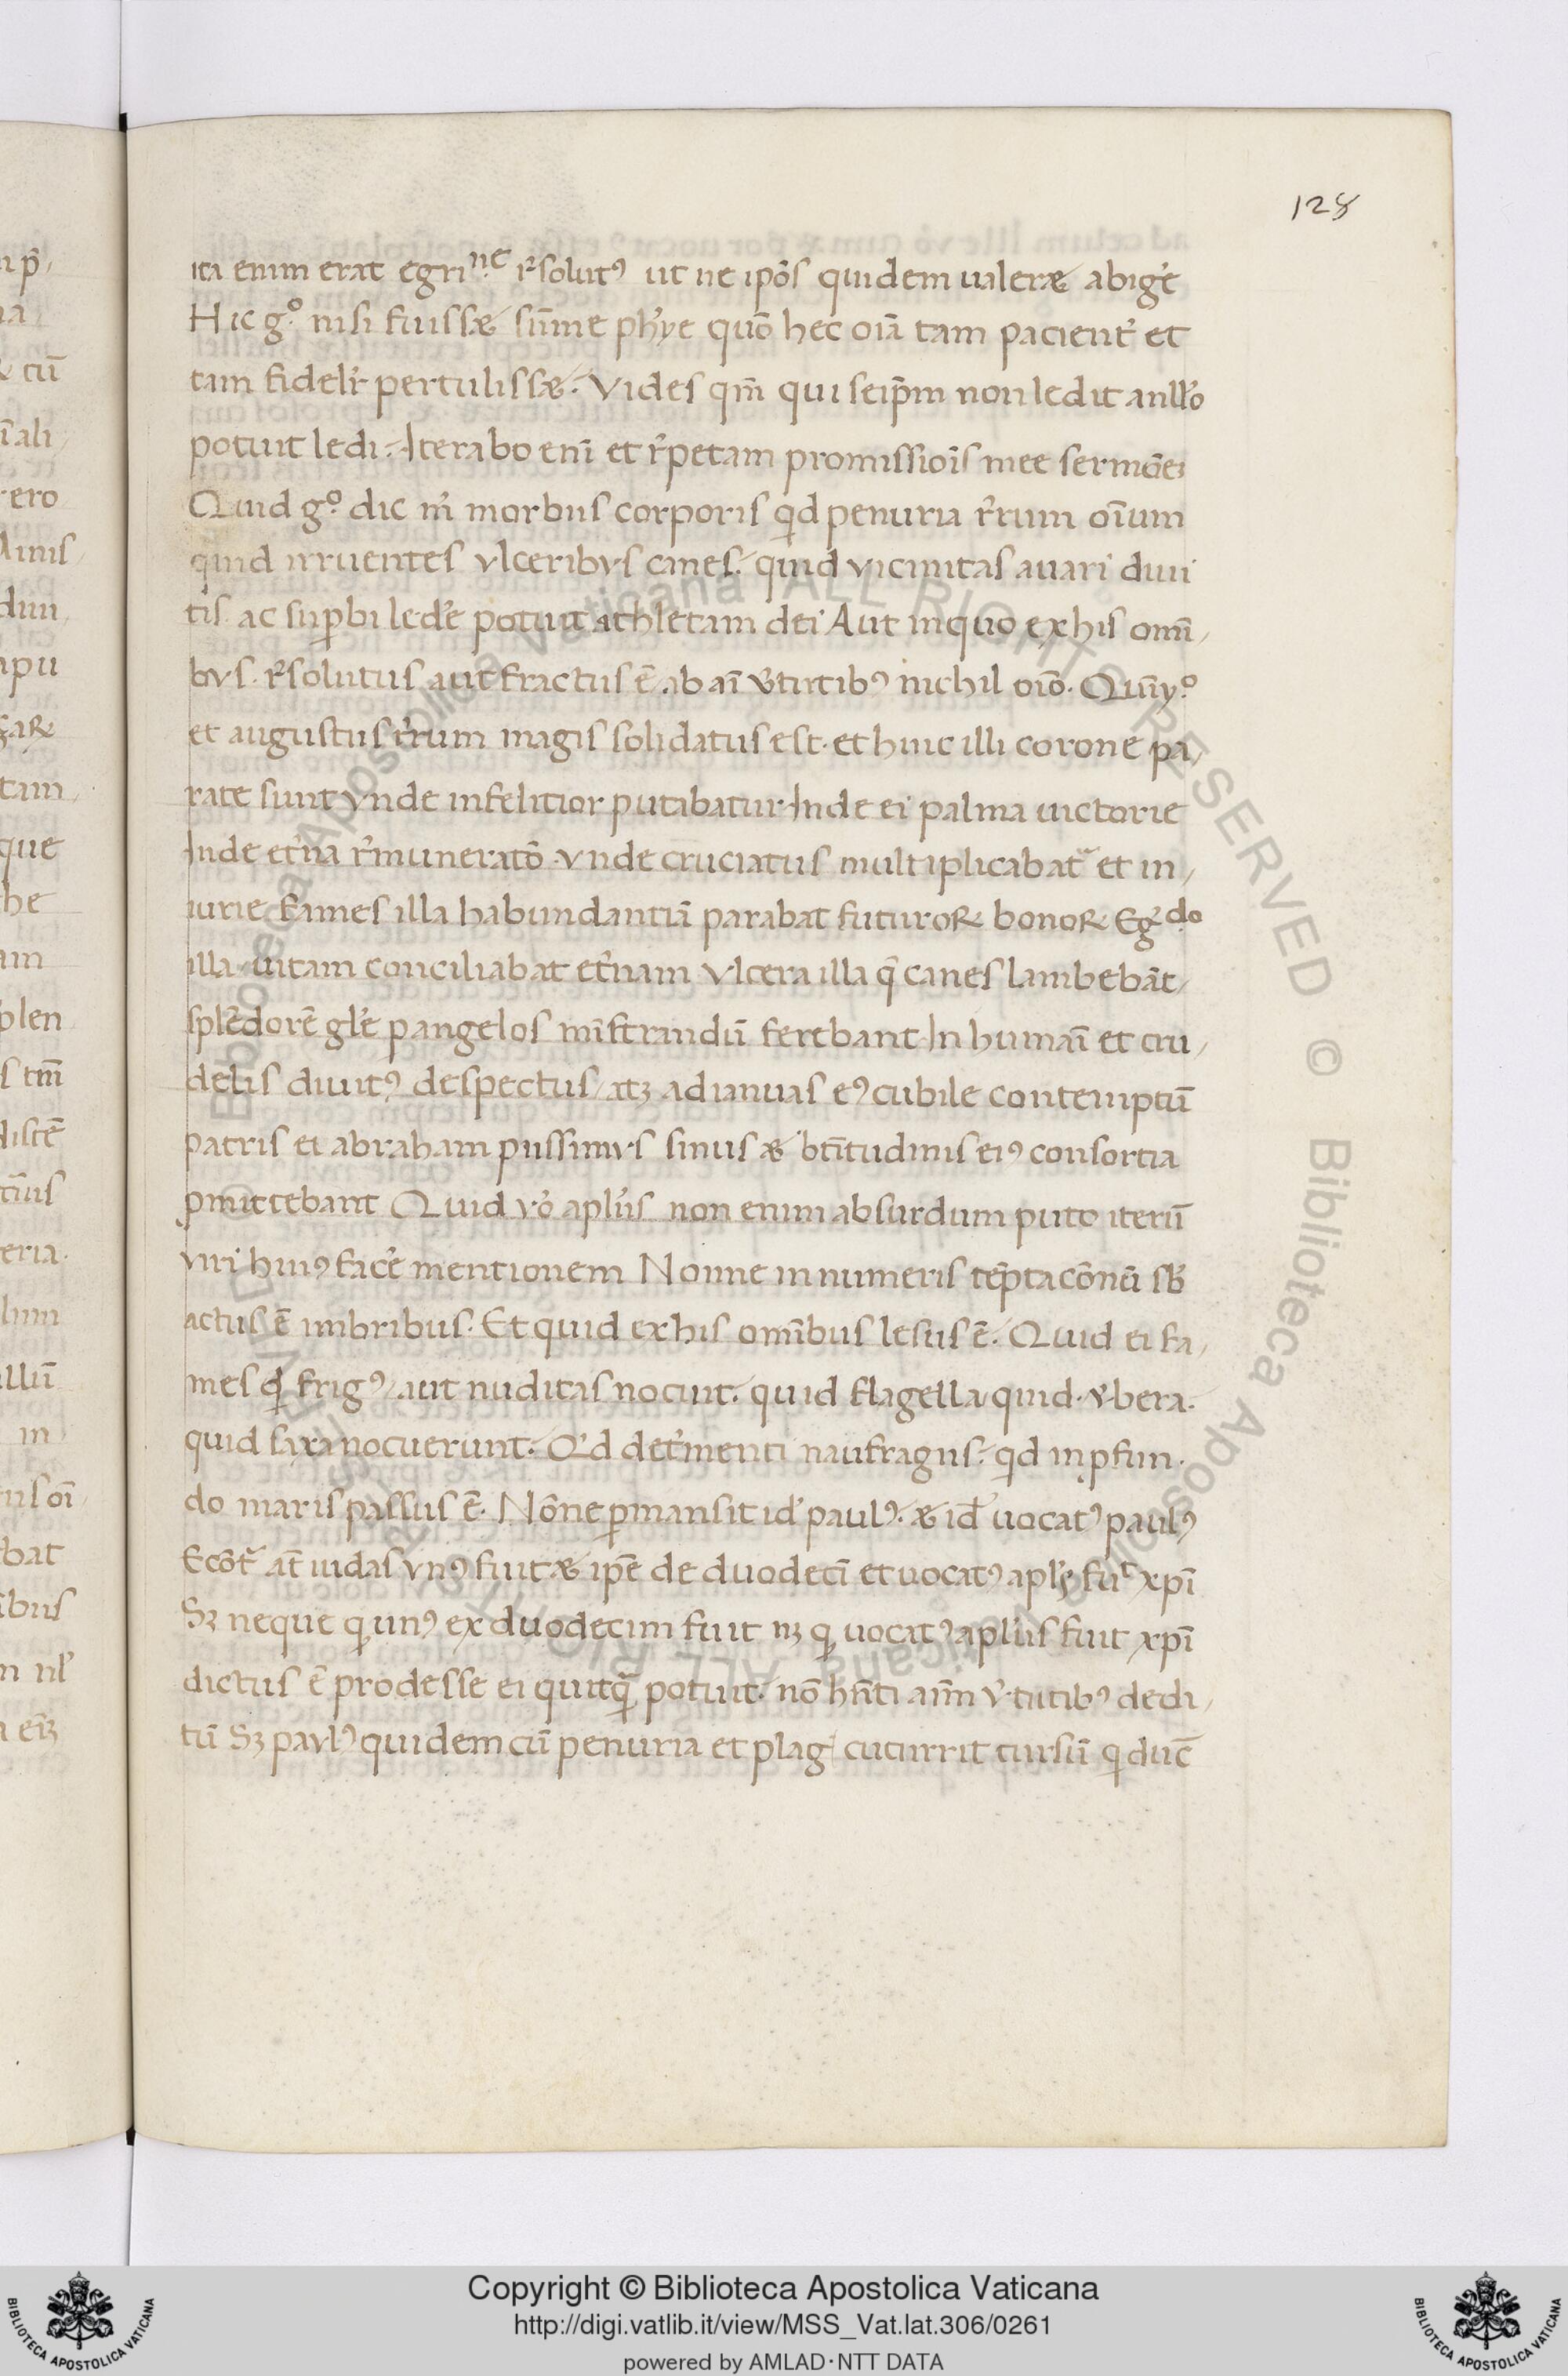 128
ita enim erat egriⁿᵉ r̉solutꝰ ut ne ipōs quidem ualeræ abiger̉
Hic g.º nisi fuissæ sūme phỷe quō hec oīa tam pacient̉ et
tam fidelit̉ pertulissæ. Vides qm̄ qui seip̄m non ledit a nll̉o
potuit ledi. Iterabo enī et r̉petam promissiōis mee sermōeȝ
Quid g.º dic m̉ morbus corporis qͥd penuria r̉rum oīum
quid irruentes ulceribus canes. quid uicinitas auari diui
tis ac suꝑbi leder̉e potuit athletam dei Aut in quo ex his omī,
bus. r̉solutus aut fractus ē. ab aī v̉tutibꝰ nichil oīo. Quīy.º
et augustus r̉rum magis solidatus est. et hinc illi corone pa,
rate sunt vnde infelicior putabatur. Inde ei palma uictorie
Inde et̉na r̉muneratō. vnde cruciatus multiplicabat᷑ et in,
iurie fames illa habundantiā parabat futuroꝝ bonoꝝ Eg.ᵈᵒ
illa uitam conciliabat et̉nam Vlcera illa q̄ canes lambebāt,
splēdorē gl̉e ꝑ angelos mīstrandū ferebant. In humāi et cru,
delis diuitꝰ despectus, atȝ ad ianuas eꝰ cubile contemptū
patris ei abraham piissimus sinus æ btītudinis eiꝰ consortia
ꝓmittebant Quid v̉o apl̉us non enim absurdum puto iterū
viri huiꝰ facer̉e mentionem Nonne innumeris tēptacōnū sb̉
actus ē imbribus. Et quid ex his omībus lesus ē. Quid ei fa,
mes qͥd frigꝰ, aut nuditas nocuit. quid flagella quid. v̉bera.
quid saxa nocuerunt. Qͥd det̉menti naufragus. qͥd in ꝓfun.
do maris passus ē. Nōne ꝑmansit id̉ paulꝰ. æ id̄ uocatꝰ paulꝰ
Ecōt᷑ at̄ iudas vnꝰ fuit æ ip̄e de duodecī et uocatꝰ apl̉ꝰ fuᵗ xp̄i
Sȝ neque ꝙ unꝰ ex duodecim fuit nȝ ꝙ uocatꝰ apl̉us fuit xp̄i
dictus ē prodesse ei quitꝗᷓ potuit. nō hn̄ti aīm v̉tutibꝰ dedi,
tū Sȝ paulꝰ quidem cū penuria et plag̉ cucurrit cursū ꝙ duc̄
Copyright © Biblioteca Apostolica Vaticana
http://digi.vatlib.it/view/MSS_Vat.lat.306/0261
powered by AMLAD·NTT DATA